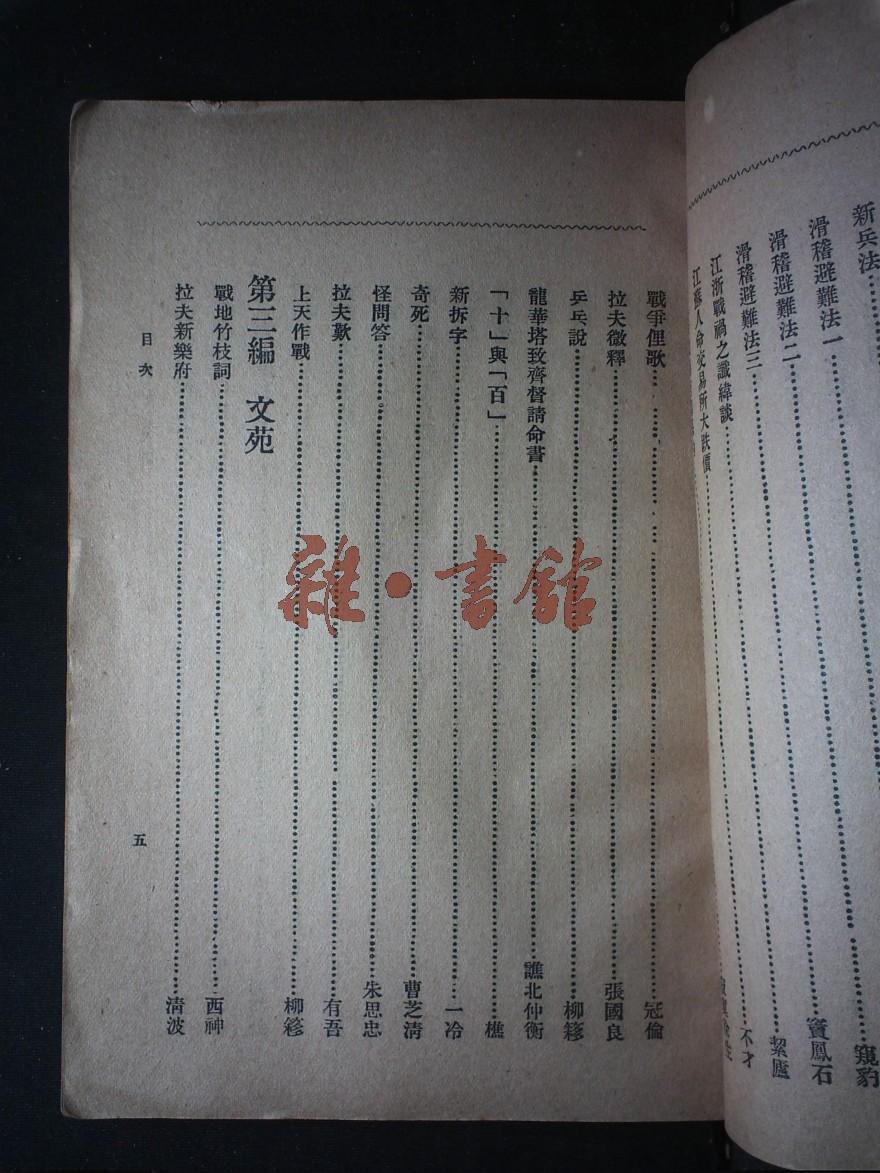 新兵法……窺豹
滑稽避難法一……竇鳳石
滑稽避難法二……絜廬
滑稽避難法三……不才
江浙戰禍之讖緯談……
江蘇人命交易所大跌價……
戰爭俚歌……冠倫
拉夫徵釋……張國良
乒乓說……柳簃
龍華塔致齊督請命書……譙北仲衡
「十」與「百」……樵
新拆字……一冷
奇死……曹芝清
怪問答……朱思忠
拉夫歎……有吾
上天作戰……柳簃
第三編 文苑
戰地竹枝詞……西神
拉夫新樂府……清波
目次
五
雜·書館